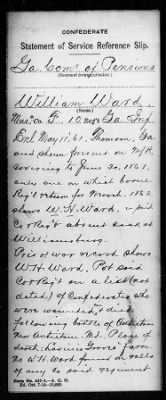 CONFEDERATE
Statement of Service Reference Slip.
Ga Com'r of Pensions
William Ward,
F. 10 Ga Inf
Enl May 11, 61, Thomson, Ga
and shown present on M/R
covering to June 30, 1861,
only one on which borne.
Regt return for March 1862
shows W. H. Ward, a pvt
Co F Regt absent sick at
Williamsburg.
Pris of war record shows
W. H. Ward, Pvt said
Co & Regt on a list (not
dated) of Confederates who
were wounded, & died
following battle of Antietam
near Antietam, Md. Place of
death Farm
No W. H. Ward found on rolls
of any Co said regiment